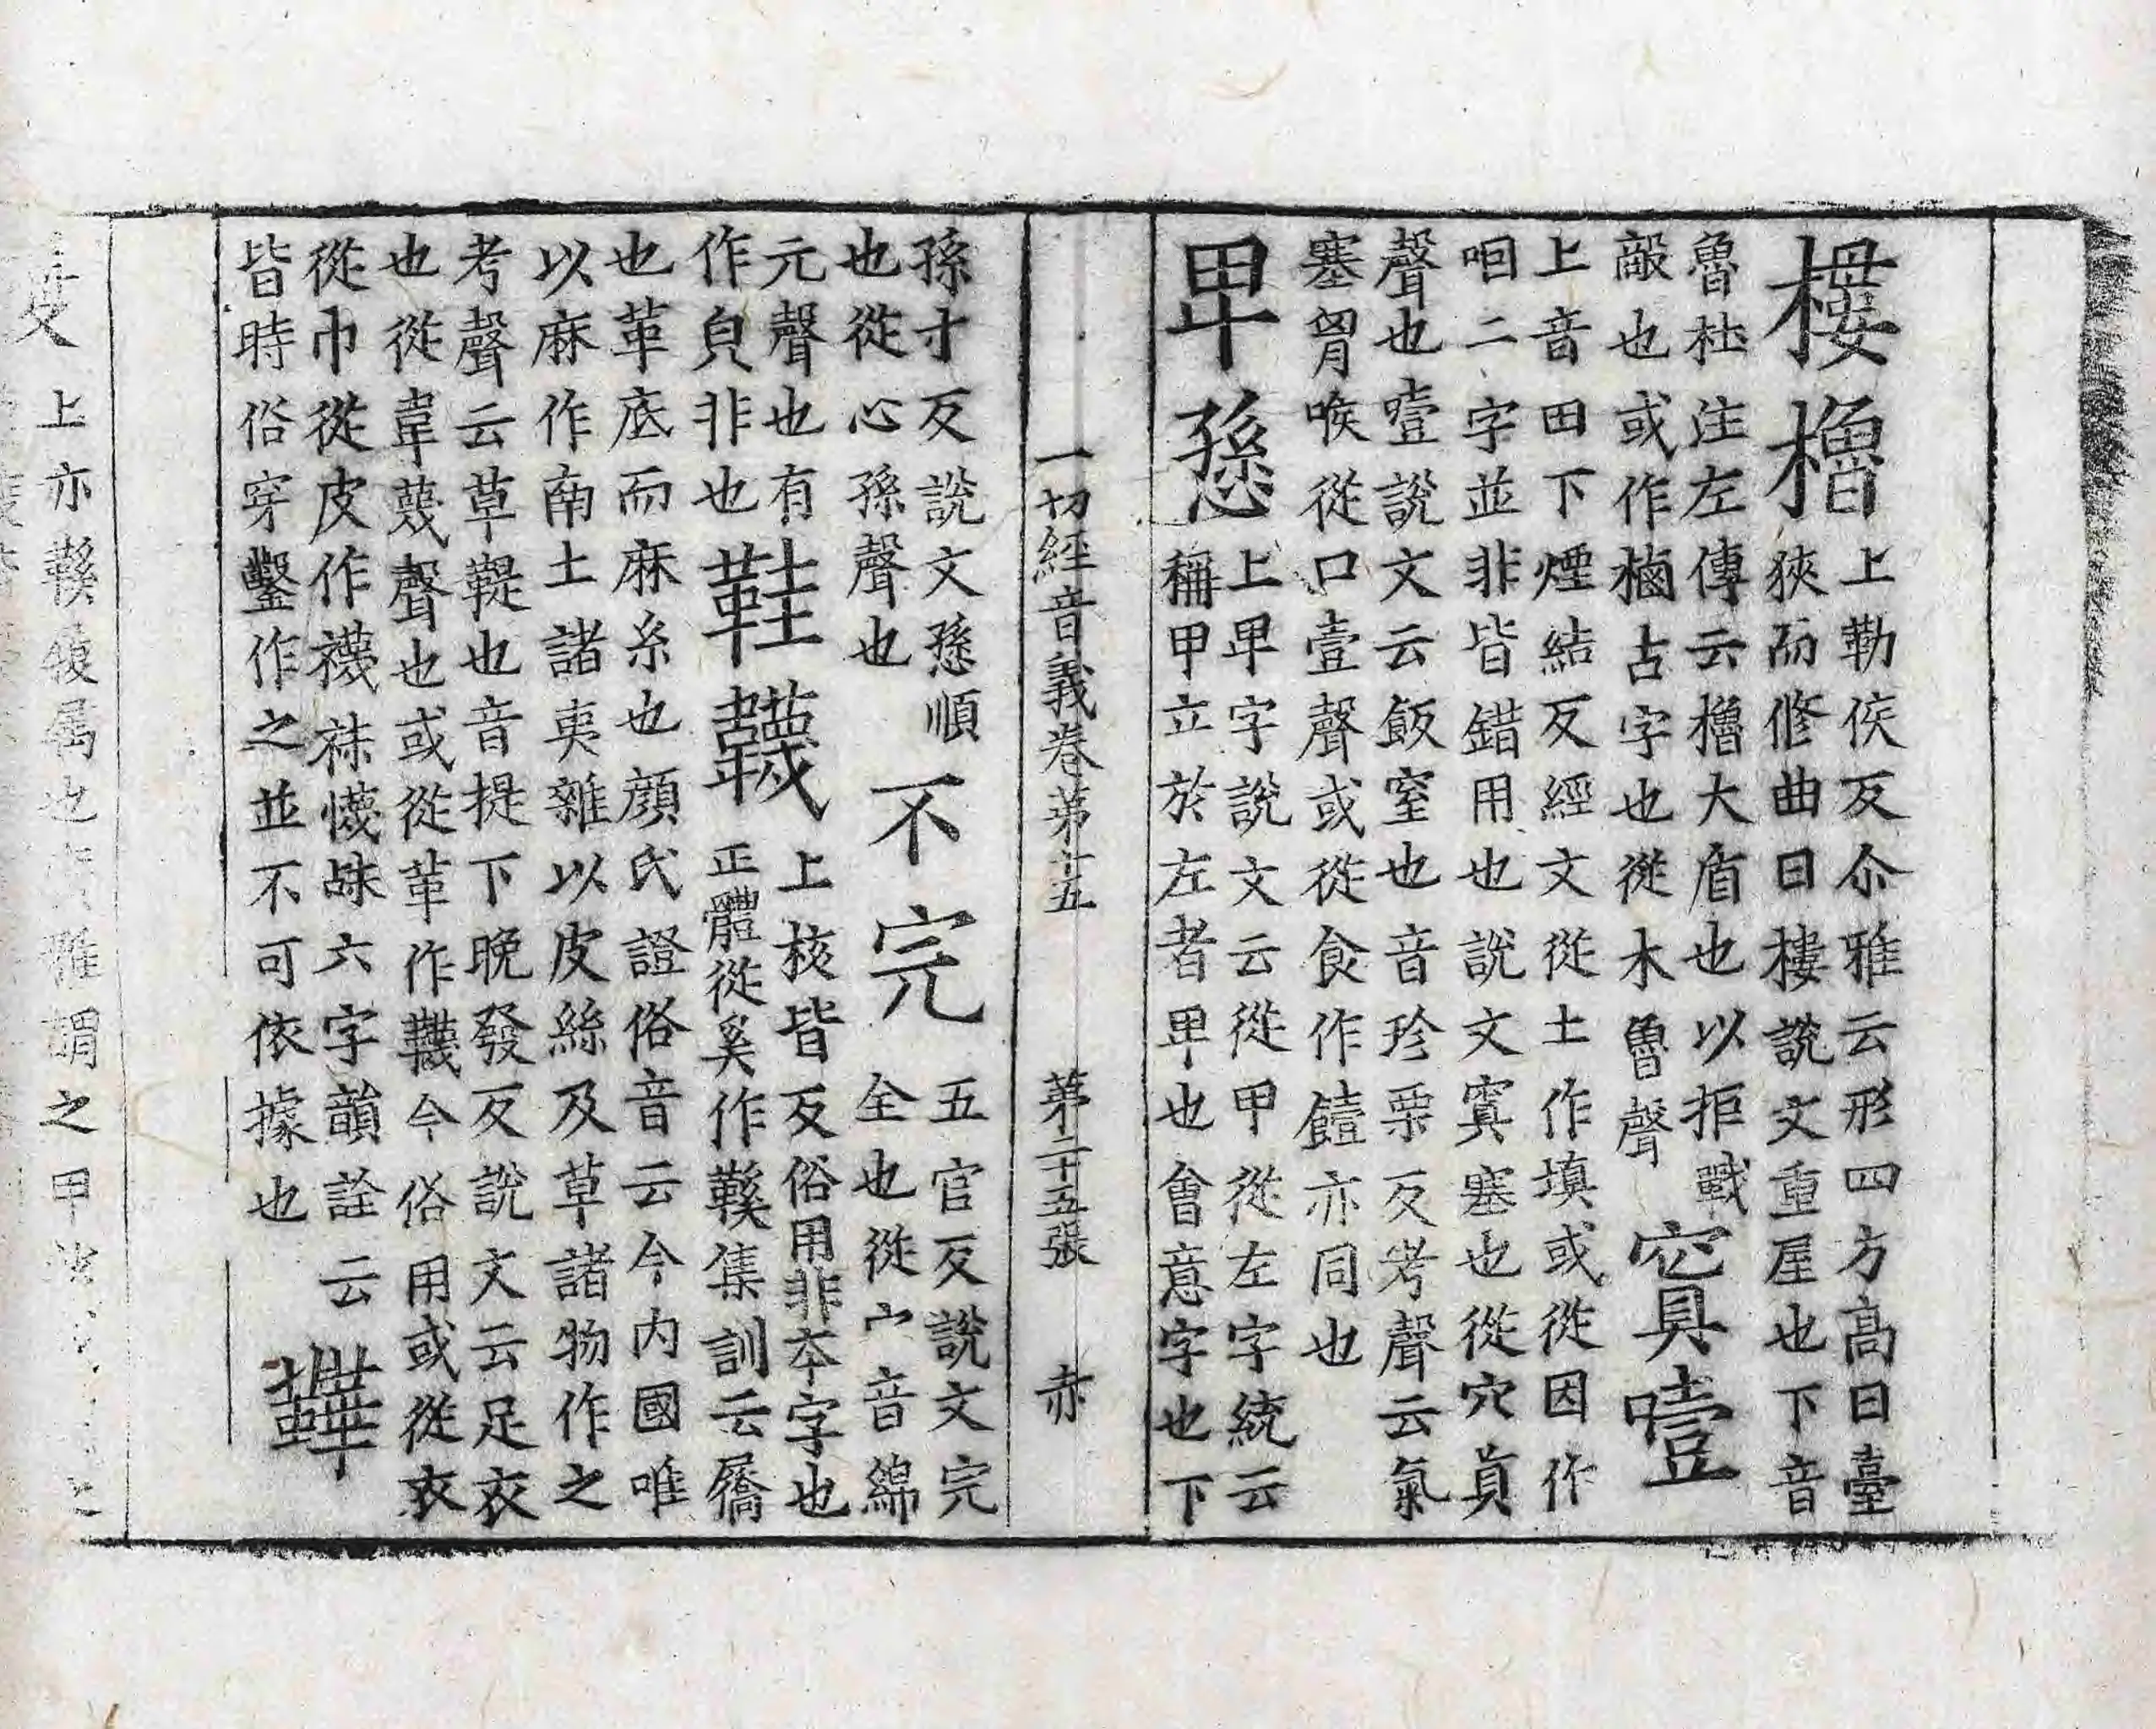 樓櫓
上勒侯反尒雅云形四方高曰臺
狹而脩曲曰樓說文重屋也下音
魯杜注左傳云櫓大盾也以拒戰
敵也或作樐古字也從木魯聲
窴噎
上音田下煙結反經文從土作填或從因作
咽二字並非皆錯用也說文窴塞也從穴真
聲也噎說文云飯窒也音珍栗反考聲云氣
塞胷喉從口壹聲或從食作饐亦同也
卑愻
上卑字說文云從甲從左字統云
稱甲立於左者卑也會意字也下
一切經音義卷第十五 第二十五張 赤
孫寸反說文愻順
也從心孫聲也
不完
五官反說文完
全也從宀音綿
元聲也有
作皃非也
鞋韈
上核皆反俗用非本字也
正體從奚作鞵集訓云屩
也革底而麻糸也顏氏證俗音云今內國唯
以麻作南土諸夷雜以皮絲及草諸物作之
考聲云草鞮也音提下晚發反說文云足衣
也從韋蔑聲也或從革作韈今俗用或從衣
從巾從皮作襪袜幭䩋六字韻詮云
皆時俗穿鑿作之並不可依據也
鞾
上亦鞵履属也 雅謂之甲沙